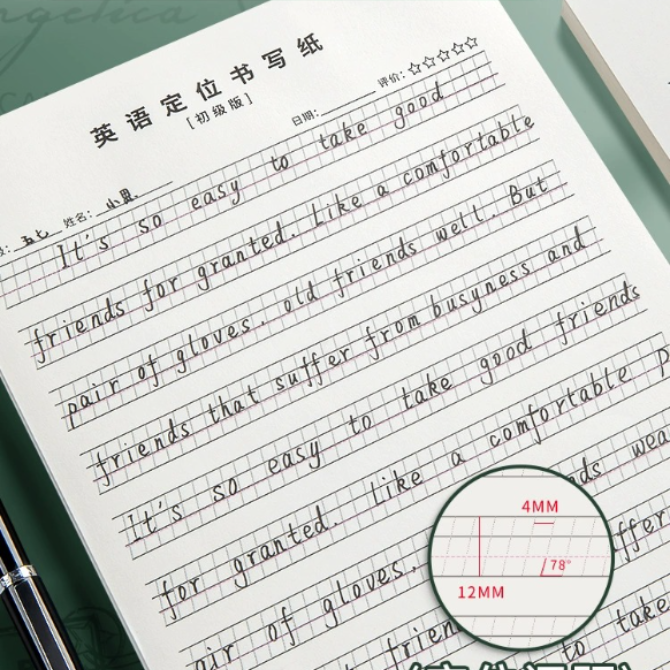 英语定位书写纸
[初级版]
日期: 评价: ☆☆☆☆☆
五七 姓名:
It's so easy to take good
friends for granted. Like a comfortable
pair of gloves. old friends well. But
friends that suffer from busyness and
It's so easy to take good friends
for granted. like a comfortable
of gloves.
to take
4MM
78°
12MM